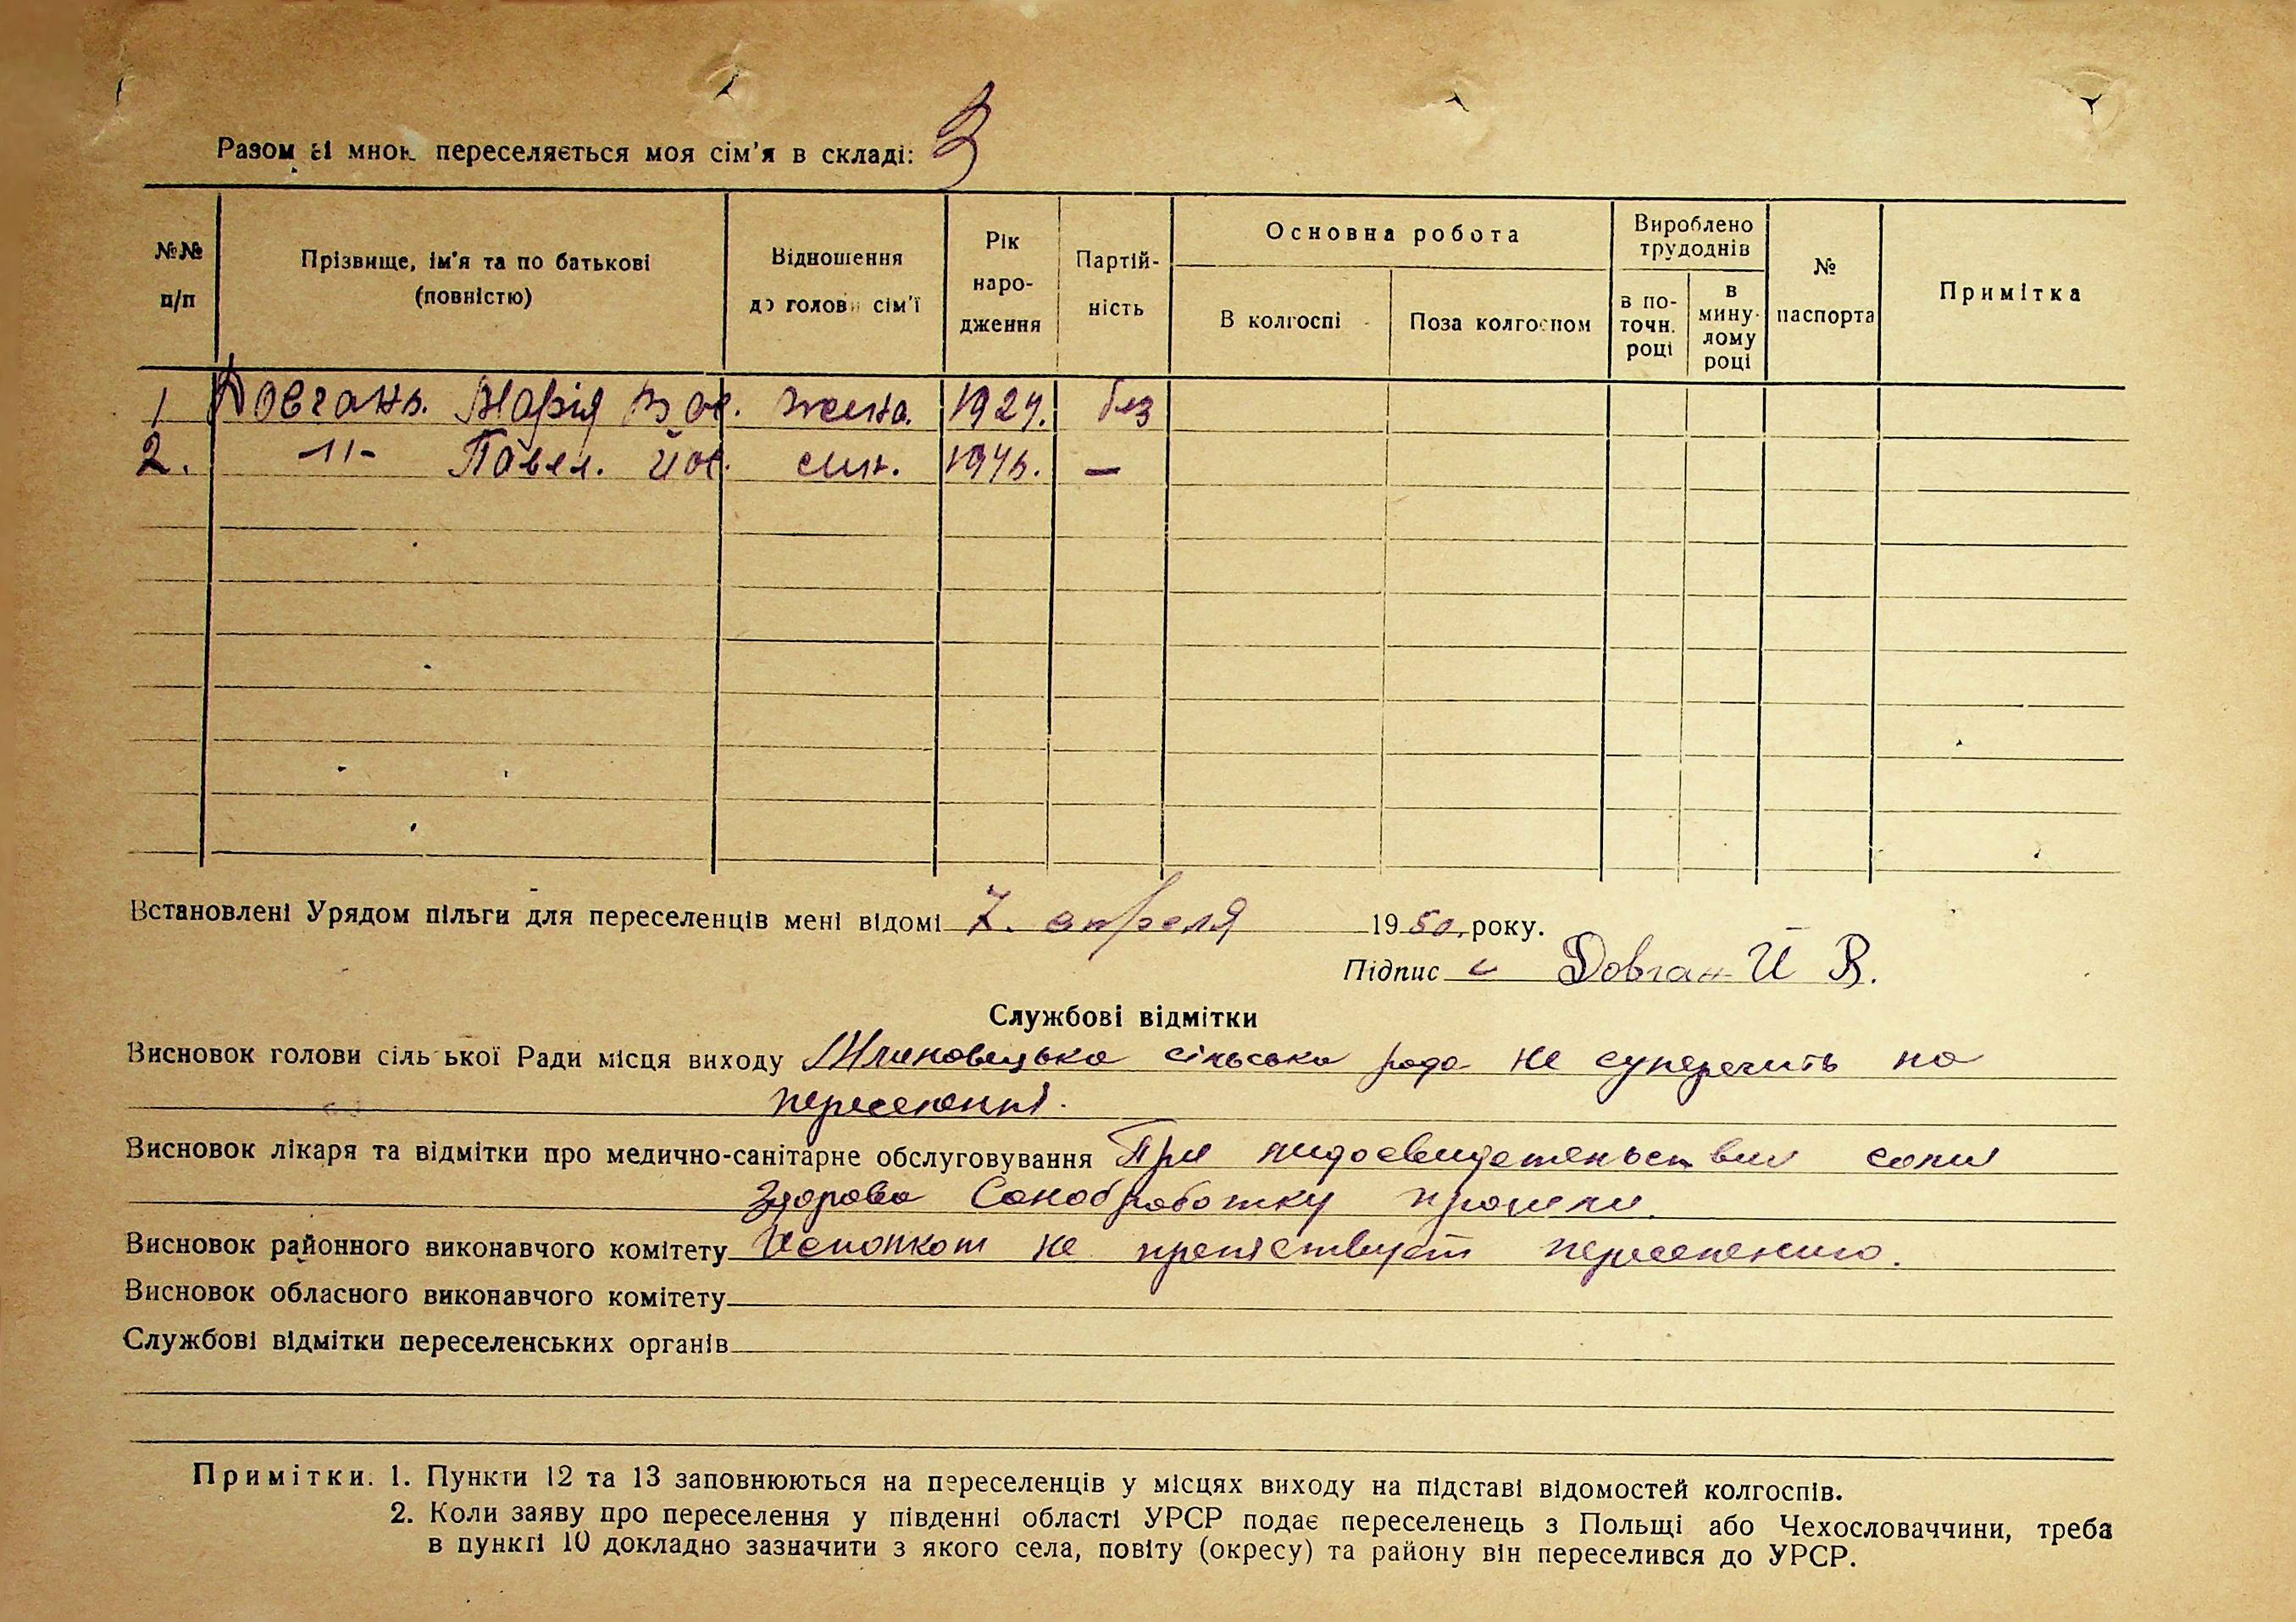 Разом зі мною переселяється моя сім'я в складі: 3
№№ п/п
Прізвище, ім'я та по батькові (повністю)
Відношення до голови сім'ї
Рік народження
Партій-
ність
Основна робота
В колгоспі
Поза колгоспом
Вироблено трудоднів
в по-
точн.
році
в
мину-
лому
році
№ паспорта
Примітка
1 Довгань. Марія Вас. жена. 1924. без
2. -11- Павел. Йос. син. 1946. —
Встановлені Урядом пільги для переселенців мені відомі 7. апреля 1950, року.
Підпис Довган Й В.
Службові відмітки
Висновок голови сільської Ради місця виходу Млиновецька сільська рада не суперечить на
переселення.
Висновок лікаря та відмітки про медично-санітарне обслуговування При
здорова Санобработку прошли.
Висновок районного виконавчого комітету Исполком не препятствует переселению.
Висновок обласного виконавчого комітету
Службові відмітки переселенських органів
Примітки. 1. Пункти 12 та 13 заповнюються на переселенців у місцях виходу на підставі відомостей колгоспів.
2. Коли заяву про переселення у південні області УРСР подає переселенець з Польщі або Чехословаччини, треба
в пункті 10 докладно зазначити з якого села, повіту (окресу) та району він переселився до УРСР.